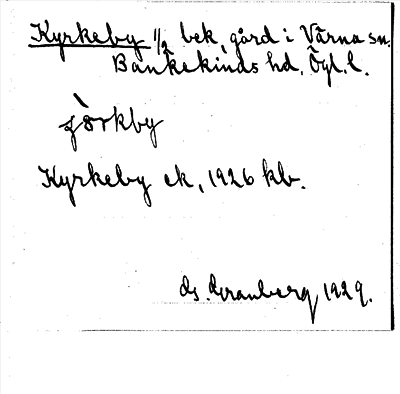 Kyrkeby 1/2 bek. gård i Värna sn.
Bankekinds hd. Ögl. l.
Kyrkeby ek, 1926 kb.
Granberg 1929.